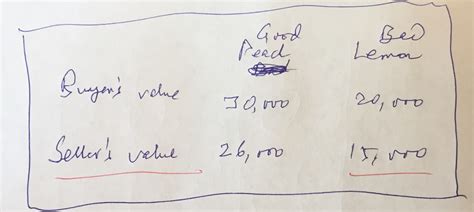 Good Bad
Peach Lemon
Buyer's value 30,000 20,000
Seller's value 26,000 15,000